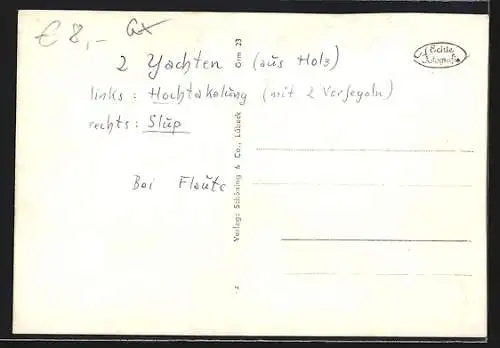 € 8,- Gx
2 Yachten (aus Holz)
links : Hochtakelung (mit 2 Vorsegeln)
rechts : Slup
Bei Flaute
Echte Fotografie
Verlag: Schöning & Co., Lübeck Orm 23